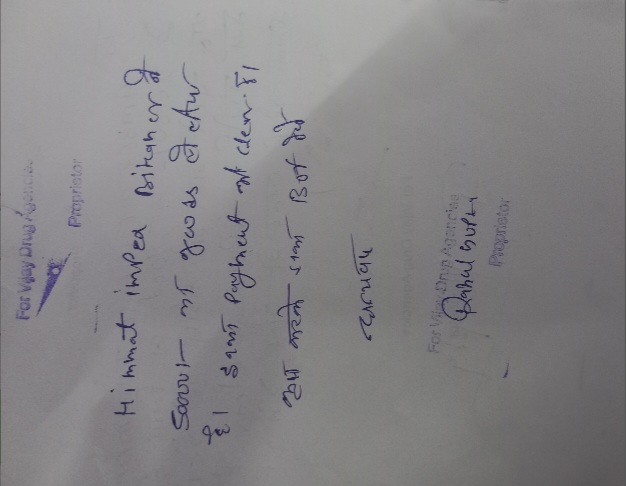 For Vijay Drug Agencies
Proprietor
Himmat impex Bikaner से
50000/- का goods लेकर
है। इनका Payment भी clear है।
कृपया करके इनका
धन्यवाद
For Vijay Drug Agencies
Rahul Gupta
Proprietor